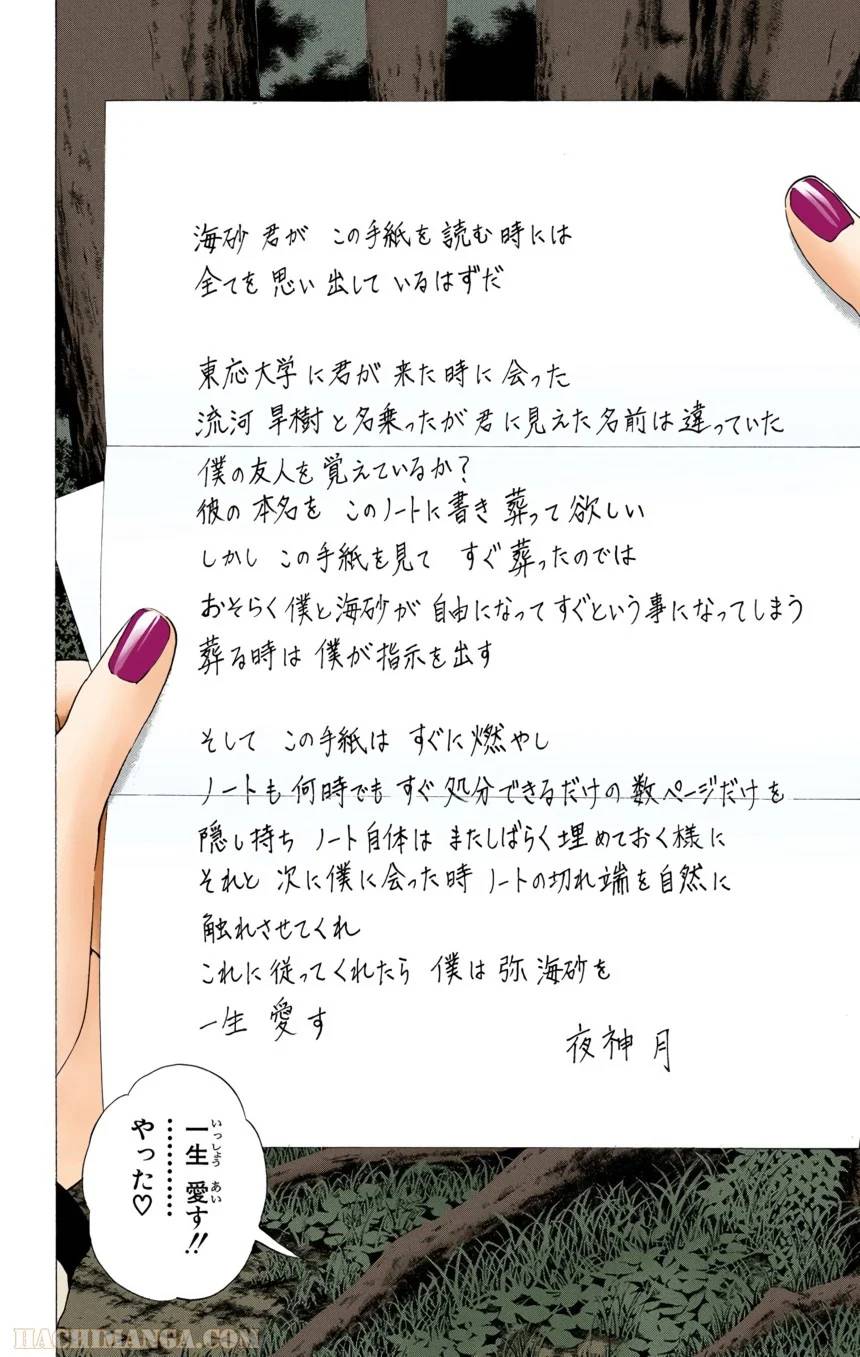 海砂 君が この手紙を読む時には
全てを思い出しているはずだ
東応大学に君が来た時に会った
流河旱樹と名乗ったが君に見えた名前は違っていた
僕の友人を覚えているか?
彼の本名を このノートに書き葬って欲しい
しかし この手紙を見て すぐ葬ったのでは
おそらく僕と海砂が自由になってすぐという事になってしまう
葬る時は 僕が指示を出す
そして この手紙は すぐに燃やし
ノートも何時でもすぐ処分できるだけの数ページだけを
隠し持ち ノート自体は またしばらく埋めておく様に
それと 次に僕に会った時 ノートの切れ端を自然に
触れさせてくれ
これに従ってくれたら 僕は弥 海砂を
一生 愛す
夜神 月
一生 愛す!!
いっしょう あい
…………
やった♡
HACHIMANGA.COM